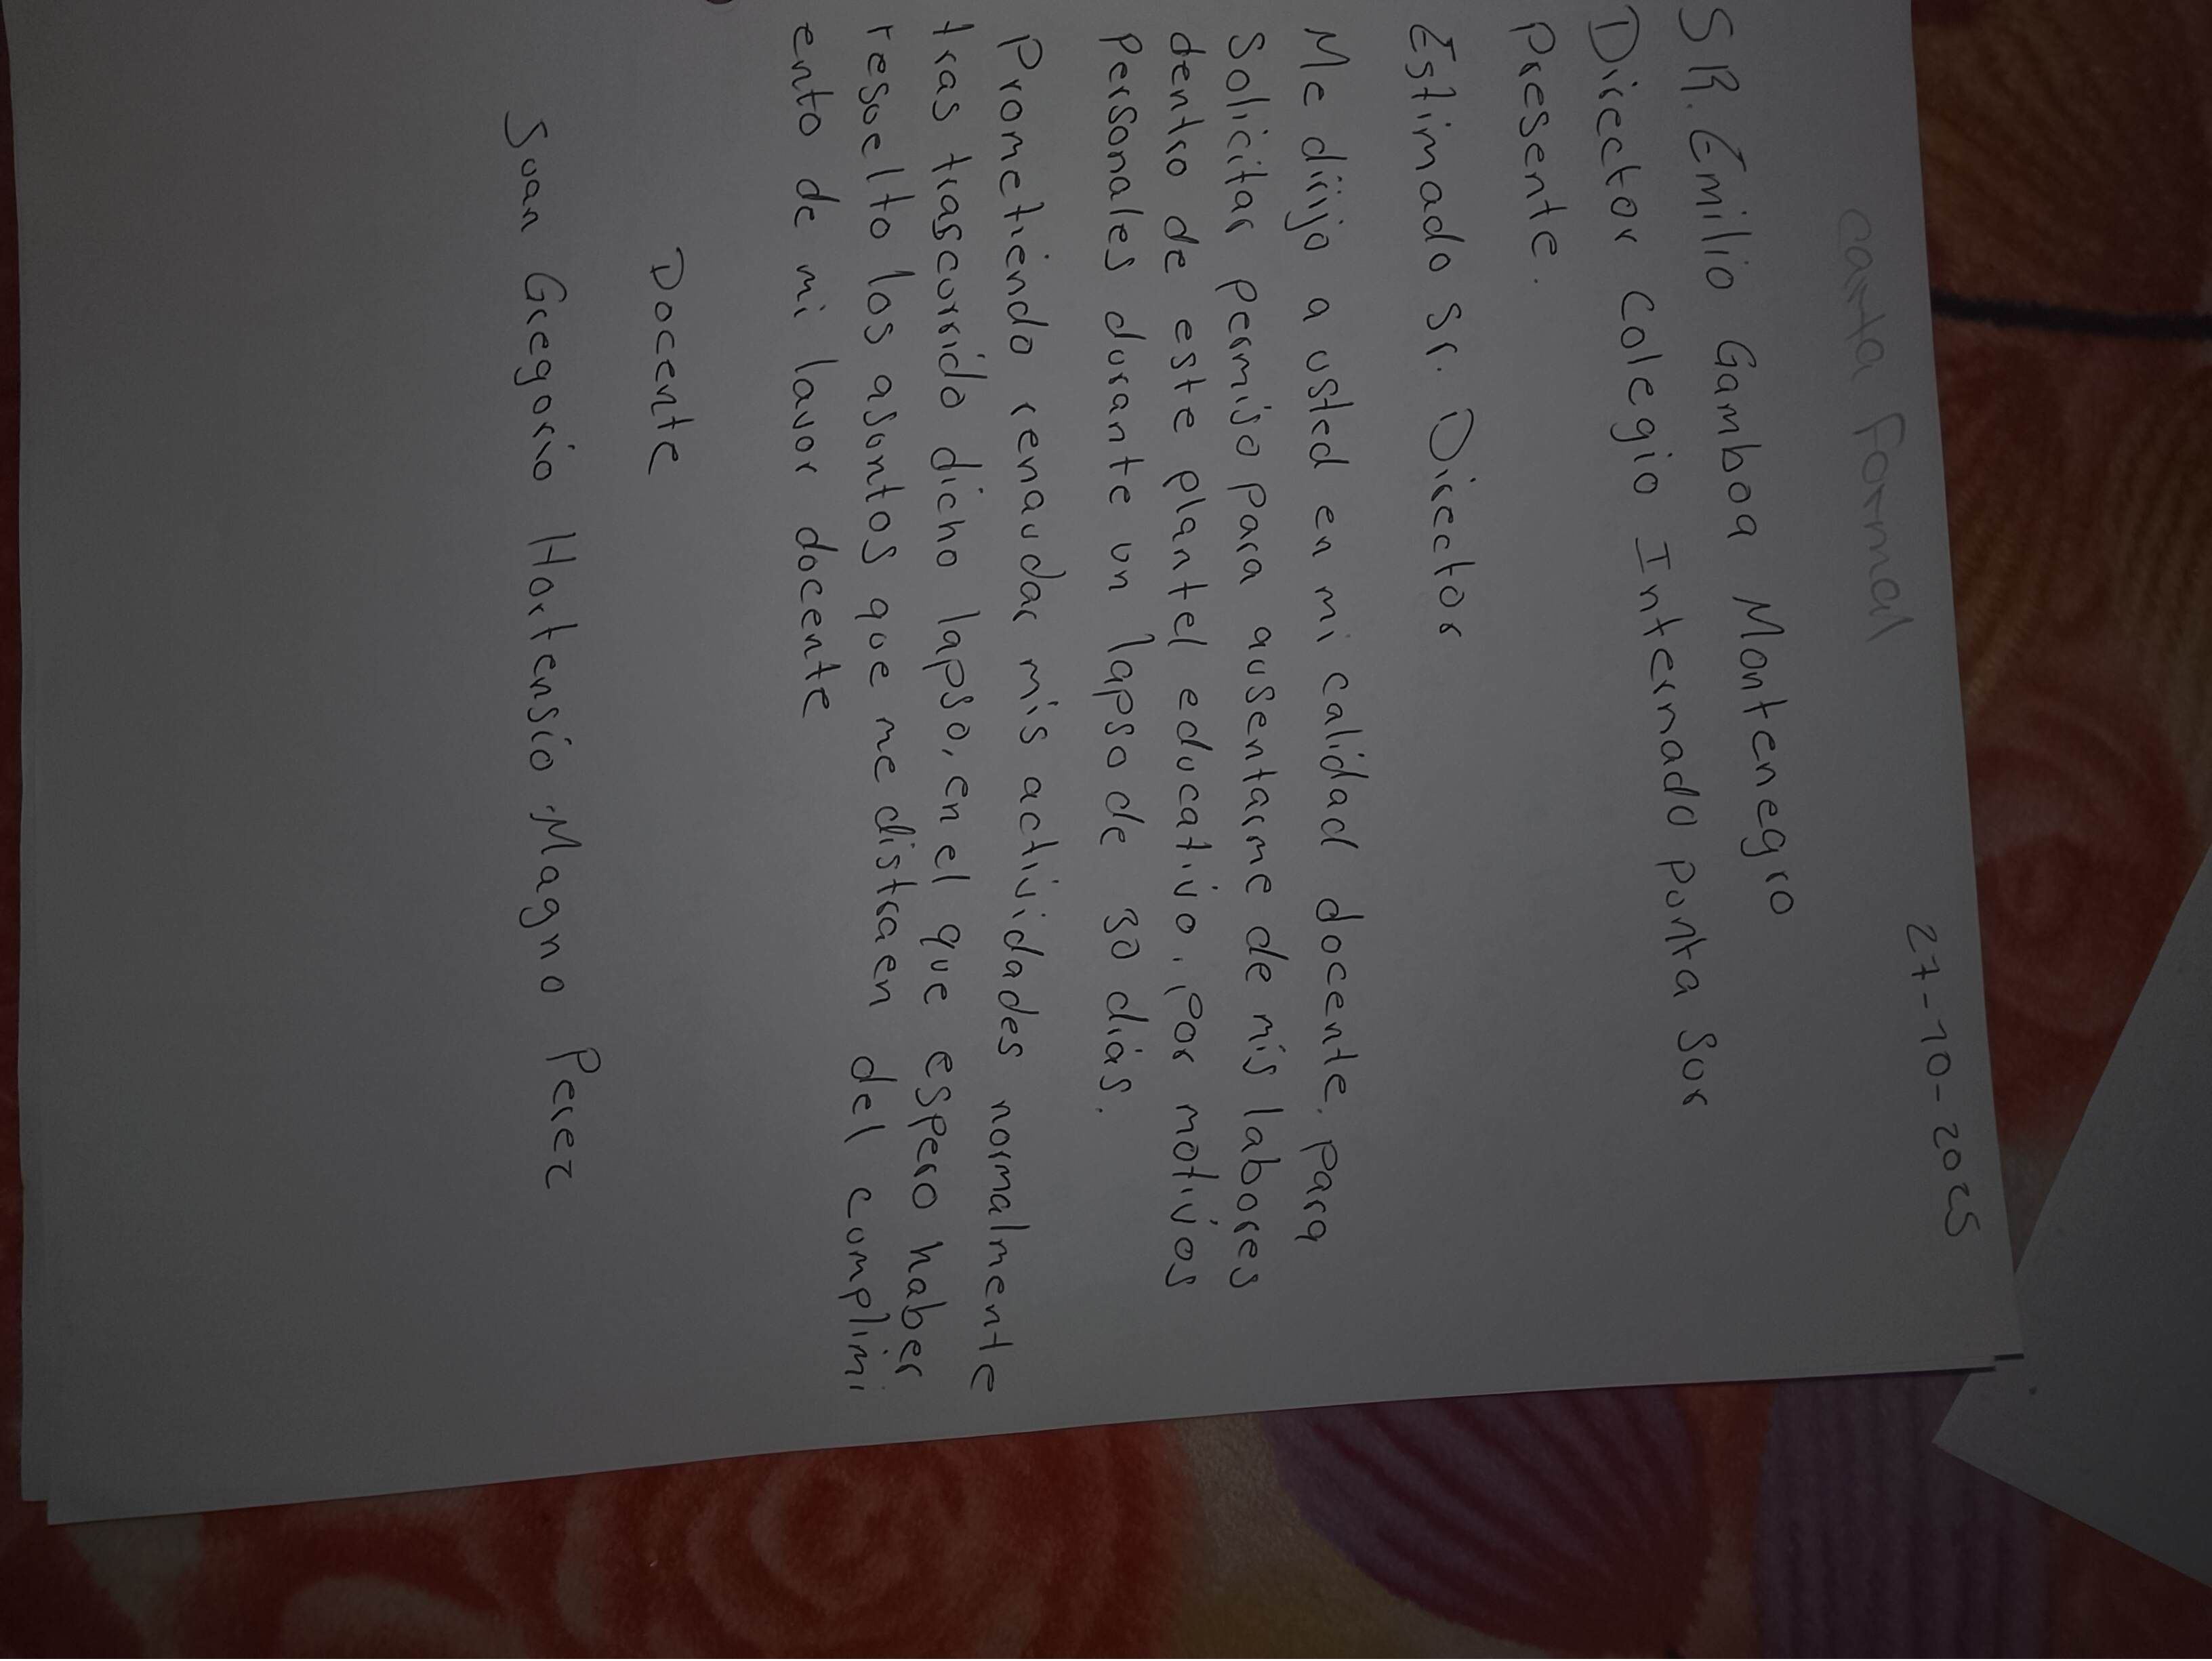 27-10-2025
carta Formal
SR. Emilio Gamboa Montenegro
Director colegio Internado punta sur
Presente.
Estimado Sr. Director
Me dirijo a usted en mi calidad docente. para
Solicitar permiso para ausentarme de mis labores
dentro de este plantel educativo. Por motivos
Personales durante un lapso de 30 días.
Prometiendo renaudar mis actividades normalmente
tras trascurrido dicho lapso, en el que espero haber
resuelto los asuntos que me distraen del cumplimi
ento de mi lavor docente
Docente
Juan Gregorio Hortensio Magno Perez